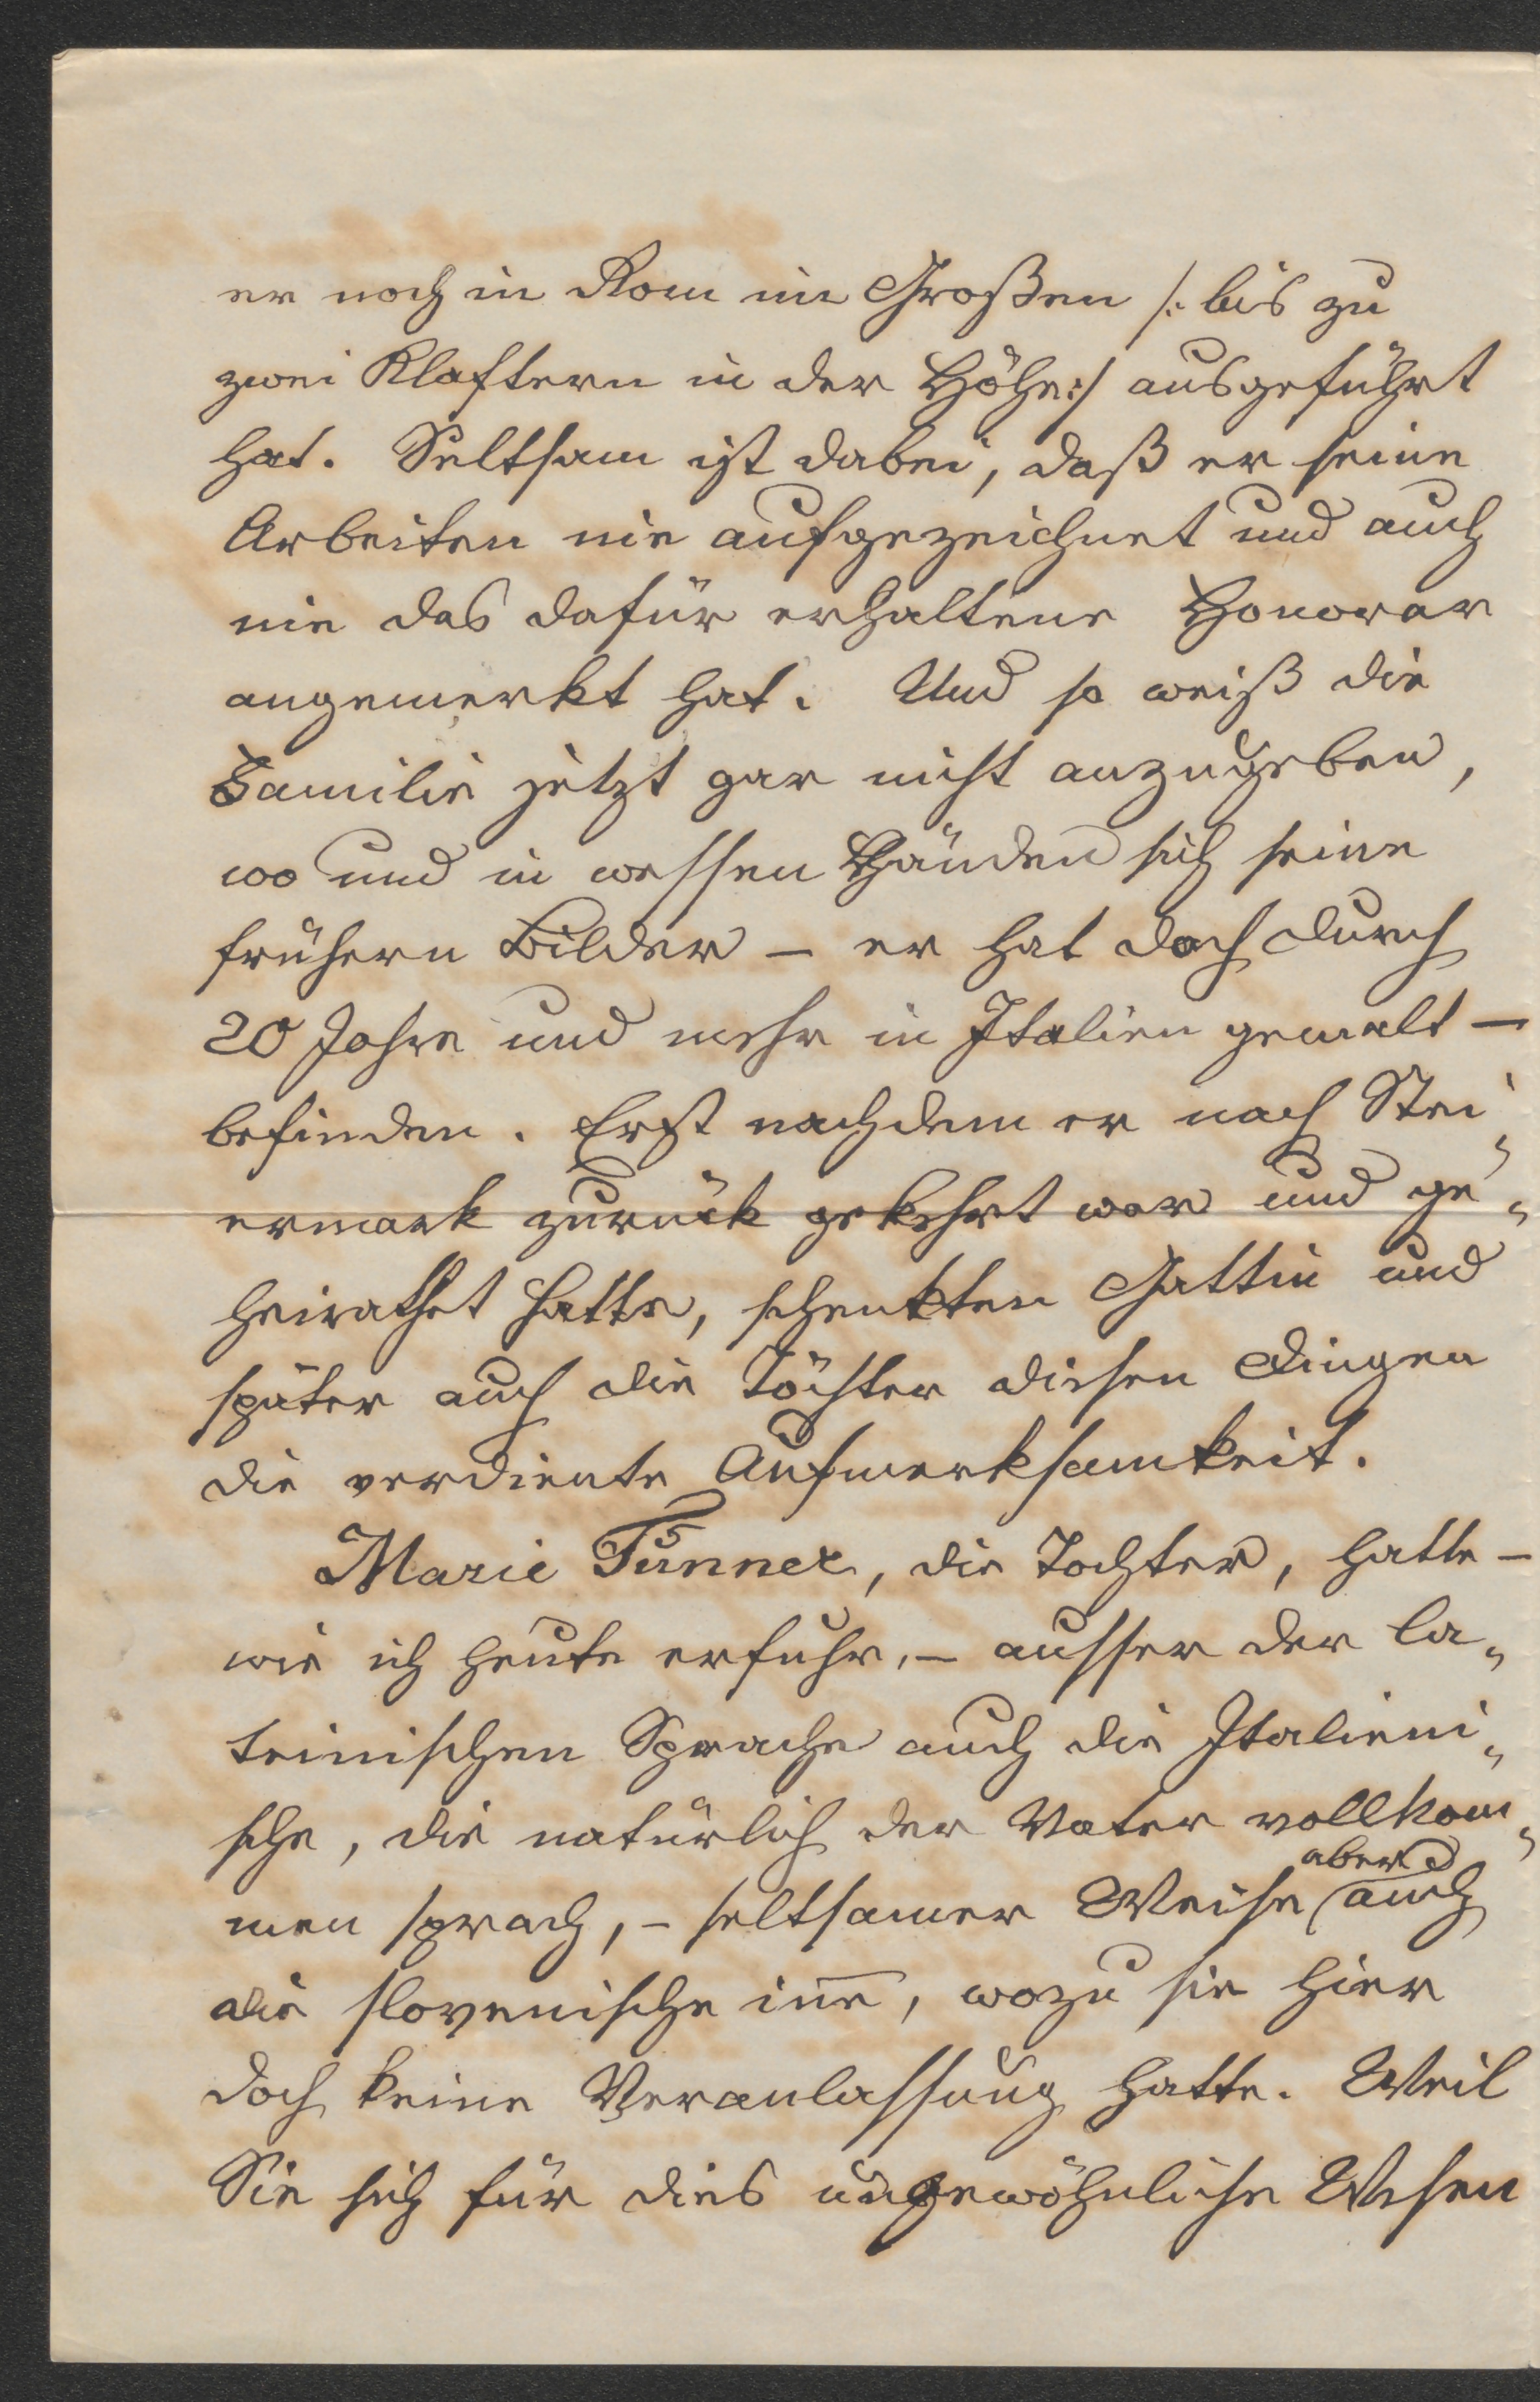 er noch in Rom im Großen /: bis zu
zwei Klaftern in der Höhe :/ ausgeführt
hat. Seltsam ist dabei, daß er seine
Arbeiten nie aufgezeichnet und auch
nie das dafür erhaltene Honorar
angemerkt hat. Und so weiß die
Familie jetzt gar nicht anzugeben,
wo und in wessen Händen sich seine
frühern Bilder – er hat doch durch
20 Jahre und mehr in Italien gemalt –
befinden. Erst nachdem er nach Stei„
ermark zurück gekehrt war und ge„
heirathet hatte, schenkten Gattin und
später auch die Töchter diesen Dingen
die verdiente Aufmerksamkeit.
Marie Tunner, die Tochter, hatte –
wie ich heute erfuhr, – ausser der la„
teinischen Sprache auch die Italieni„
sche, die natürlich der Vater vollkom„
men sprach, – seltsamer Weise aber auch
die slovenische iñe, wozu sie hier
doch keine Veranlassung hatte. Weil
Sie sich für dies ungewöhnliche Wesen